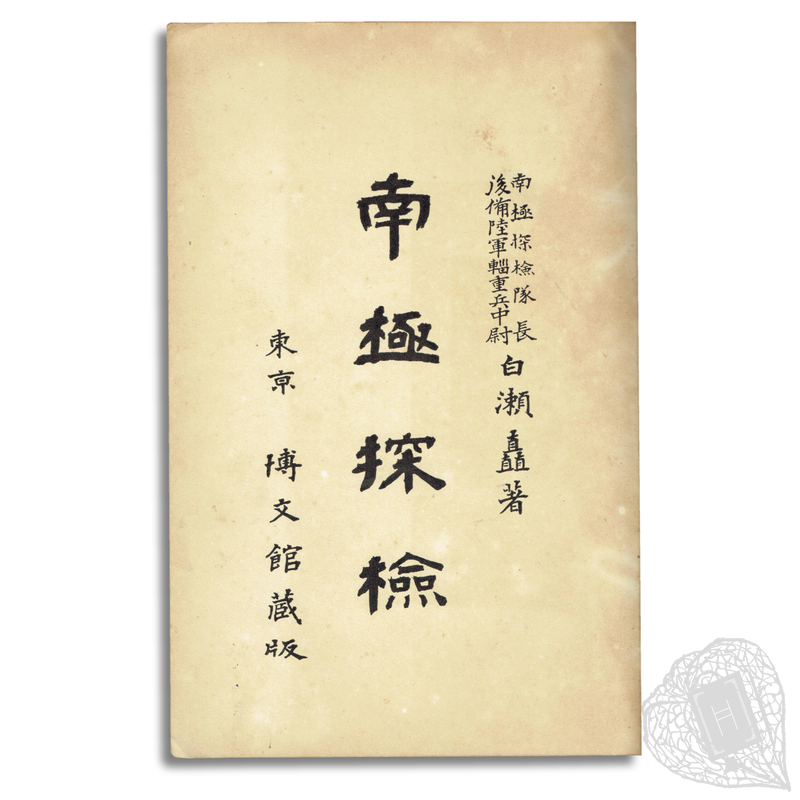 南極探檢隊長
後備陸軍輜重兵中尉
白瀬矗著
南極探檢
東京 博文館蔵版
H